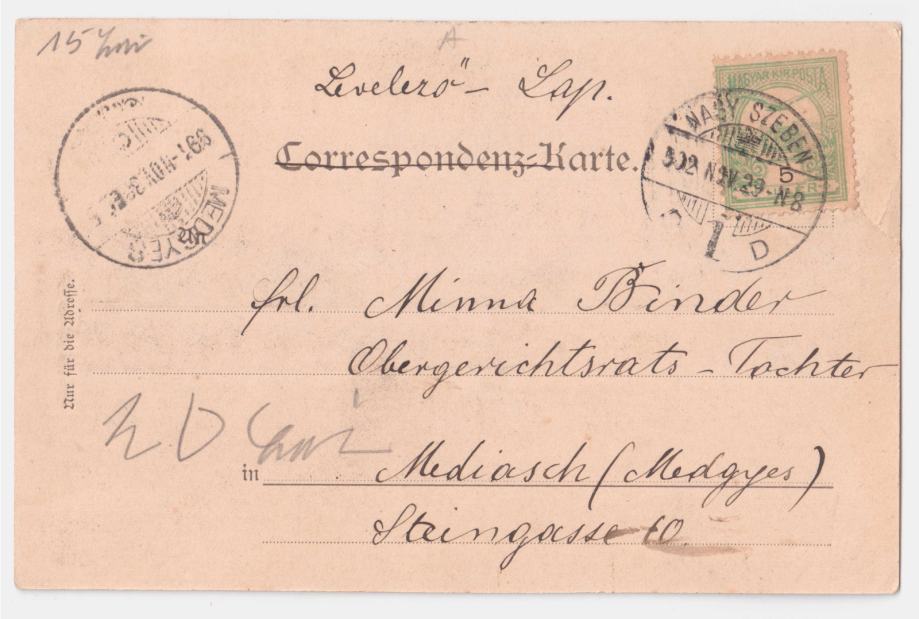 15 Lei
A
Levelező - Lap.
Correspondenz-Karte.
MAGYAR KIR. POSTA
NAGY SZEBEN
902 NOV. 29 - N8
5
1 D
MEDGYES
Nur für die Adresse.
frl. Minna Binder
Obergerichtsrats - Tochter
in Mediasch (Medgyes)
Steingasse 10.